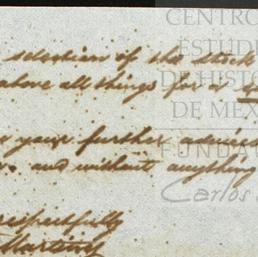 selection of the stock
above all things for a
your further advices
and without anything
respectfully
Martinez
CENTRO
ESTUDI
DE HISTO
DE MEX
FUNDA
Carlos S